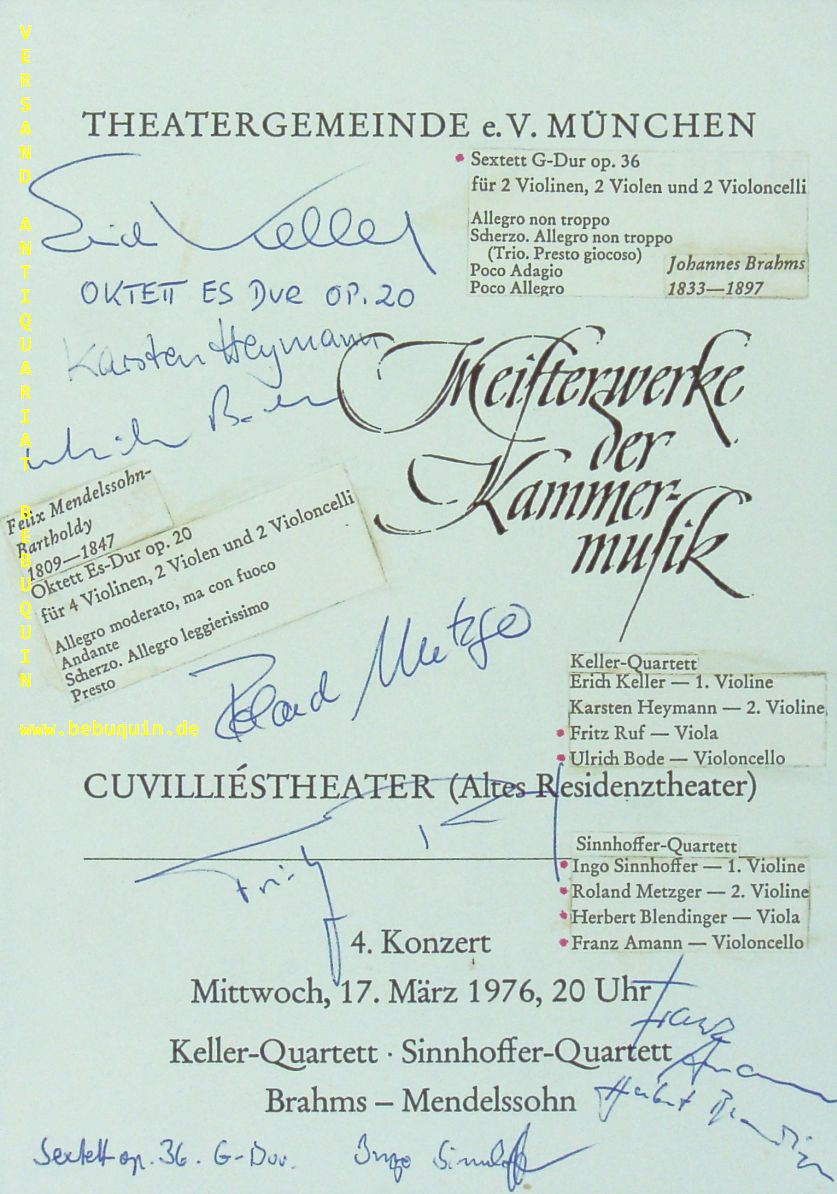 VERSAND ANTIQUARIAT BEBUQUIN
THEATERGEMEINDE e.V. MÜNCHEN
• Sextett G-Dur op. 36
für 2 Violinen, 2 Violen und 2 Violoncelli
Allegro non troppo
Scherzo. Allegro non troppo
(Trio. Presto giocoso)
Poco Adagio
Poco Allegro
Johannes Brahms
1833—1897
Erich Keller
OKTETT ES DUR OP. 20
Karsten Heymann
Ulrich Bode
Meisterwerke
der
Kammer-
musik
Felix Mendelssohn-
Bartholdy
1809—1847
Oktett Es-Dur op. 20
für 4 Violinen, 2 Violen und 2 Violoncelli
Allegro moderato, ma con fuoco
Andante
Scherzo. Allegro leggierissimo
Presto
Roland Metzger
www.bebuquin.de
Keller-Quartett
Erich Keller — 1. Violine
Karsten Heymann — 2. Violine
• Fritz Ruf — Viola
• Ulrich Bode — Violoncello
CUVILLIÉSTHEATER (Altes Residenztheater)
Fritz Ruf
Sinnhoffer-Quartett
• Ingo Sinnhoffer — 1. Violine
• Roland Metzger — 2. Violine
• Herbert Blendinger — Viola
• Franz Amann — Violoncello
4. Konzert
Mittwoch, 17. März 1976, 20 Uhr
Keller-Quartett · Sinnhoffer-Quartett
Brahms – Mendelssohn
Franz
Amann
Herbert Blendinger
Sextett op. 36. G-Dur. Ingo Sinnhoffer